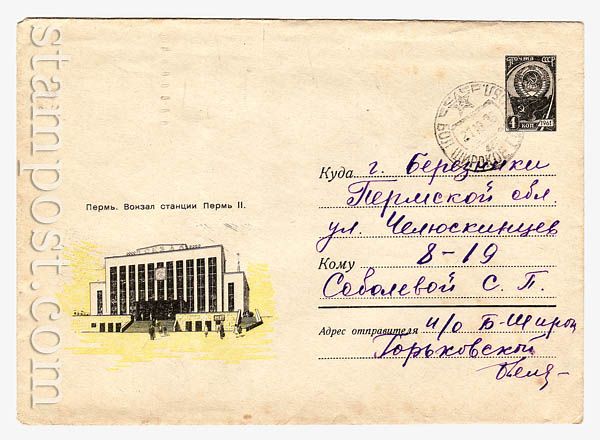 stampost.com
ПОЧТА СССР
4 КОП 1961
Пермь. Вокзал станции Пермь II.
Куда г. Березники
Пермской обл.
ул. Челюскинцев
8-19
Кому
Соболевой С. П.
Адрес отправителя п/о Б-Широк
Горьковской